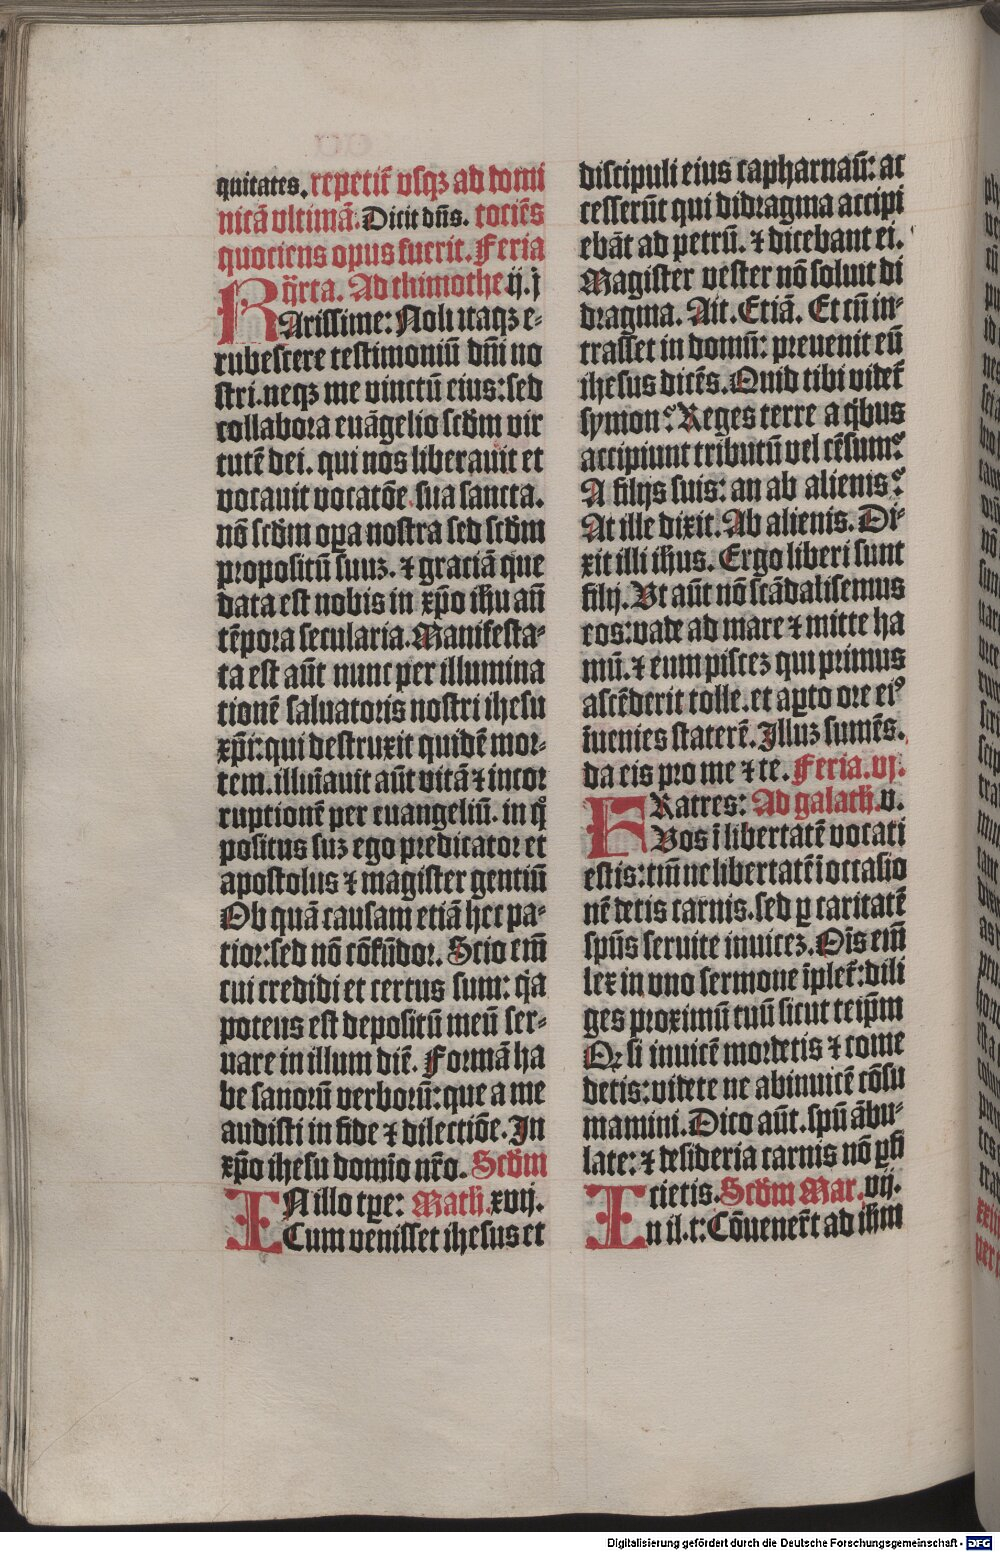 quitates. repetit̄ vsqꝫ ad domi
nicā vltimā. Dicit dn̄s. tociēs
quociens opus fuerit. Feria
q̈rta. Ad thimothe ij. j
KArissime: Noli itaqꝫ e-
rubescere testimoniū dn̄i no
stri. neqꝫ me vinctū eius: sed
collabora euāgelio scd̄m vir
tutē dei. qui nos liberauit et
vocauit vocatōe sua sancta.
nō scd̄m oꝑa nostra sed scd̄m
propositū suuꝫ. ⁊ graciā que
data est nobis in xp̄o ih̄u añ
tēpora secularia. Manifesta-
ta est aūt nunc per illumina
tionē saluatoris nostri ihesu
xp̄i: qui destruxit quidē mor-
tem. illuīauit aūt vitā ⁊ incor
ruptionē per euangeliū. in q̄
positus suꝫ ego predicator et
apostolus ⁊ magister gentiū
Ob quā causam etiā hec pa-
tior: sed nō cōfūdor. Scio em̄
cui credidi et certus sum: q̇a
potens est depositū meū ser-
uare in illum diē. Formā ha
be sanorū verborū: que a me
audisti in fide ⁊ dilectiōe. In
xp̄o ihesu domīo nr̄o. Scd̄m
IN illo tꝑe: Math̄. xvij.
Cum venisset ihesus et
discipuli eius capharnaū: ac
cesserūt qui didragma accipi
ebāt ad petrū. ⁊ dicebant ei.
Magister vester nō soluit di
dragma. Ait. Etiā. Et cū in-
trasset in domū: preuenit eū
ihesus dicēs. Quid tibi videt̄
symon? Reges terre a q̇bus
accipiunt tributū vel cēsum?
A filijs suis: an ab alienis?
At ille dixit. Ab alienis. Di-
xit illi ih̄us. Ergo liberi sunt
filij. Vt aūt nō scādalisemus
eos: vade ad mare ⁊ mitte ha
mū. ⁊ eum pisceꝫ qui primus
ascēderit tolle. et aꝑto ore eiꝰ
īuenies staterē. Illuꝫ sumēs.
da eis pro me ⁊ te. Feria. vj.
FRatres: Ad galath̄. v.
Vos ī libertatē vocati
estis: tm̄ ne libertatē ī occasio
nē detis carnis. sed ꝑ caritatē
spūs seruite inuiceꝫ. Oīs em̄
lex in vno sermone īplet̄: dili
ges proximū tuū sicut teip̄m
Qꝛ si inuicē mordetis ⁊ come
detis: videte ne abinuicē cōsu
mamini. Dico aūt. spū ābu-
late: ⁊ desideria carnis nō ꝑfi
cietis. Scd̄m Mar. vij.
In il. t: Cōuener̄t ad ih̄m
Digitalisierung gefördert durch die Deutsche Forschungsgemeinschaft - DFG